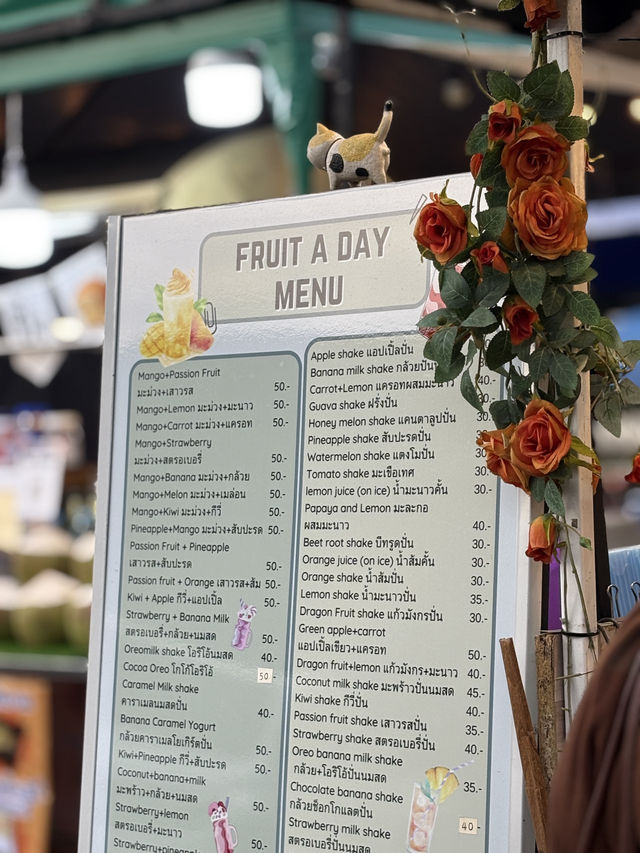 FRUIT A DAY
MENU
Mango+Passion Fruit
มะม่วง+เสาวรส 50.-
Mango+Lemon มะม่วง+มะนาว 50.-
Mango+Carrot มะม่วง+แครอท 50.-
Mango+Strawberry
มะม่วง+สตรอเบอรี่ 50.-
Mango+Banana มะม่วง+กล้วย 50.-
Mango+Melon มะม่วง+เมล่อน 50.-
Mango+Kiwi มะม่วง+กีวี่ 50.-
Pineapple+Mango มะม่วง+สับปะรด 50.-
Passion Fruit + Pineapple
เสาวรส+สับปะรด 50.-
Passion fruit + Orange เสาวรส+ส้ม 50.-
Kiwi + Apple กีวี่+แอปเปิ้ล 50.-
Strawberry + Banana Milk
สตรอเบอรี่+กล้วย+นมสด 50.-
Oreomilk shake โอริโอ้นมสด 40.-
Cocoa Oreo โกโก้โอริโอ้ 50
Caramel Milk shake
คาราเมลนมสดปั่น 40.-
Banana Caramel Yogurt
กล้วยคาราเมลโยเกิร์ตปั่น 50.-
Kiwi+Pineapple กีวี่+สับปะรด 50.-
Coconut+banana+milk
มะพร้าว+กล้วย+นมสด 50.-
Strawberry+lemon
สตรอเบอรี่+มะนาว 50.-
Strawberry+pineapple
Apple shake แอปเปิ้ลปั่น
Banana milk shake
Carrot+Lemon 40.-
Guava shake ฝรั่งปั่น
Honey melon shake แคนตาลูปปั่น
Pineapple shake สับปะรดปั่น
Watermelon shake แตงโมปั่น
Tomato shake มะเขือเทศ 30.-
lemon juice (on ice) น้ำมะนาวคั้น 30.-
Papaya and Lemon มะละกอ
ผสมมะนาว 40.-
Beet root shake บีทรูทปั่น 30.-
Orange juice (on ice) น้ำส้มคั้น 30.-
Orange shake น้ำส้มปั่น 30.-
Lemon shake น้ำมะนาวปั่น 35.-
Dragon Fruit shake แก้วมังกรปั่น 30.-
Green apple+carrot
แอปเปิ้ลเขียว+แครอท 50.-
Dragon fruit+lemon แก้วมังกร+มะนาว 40.-
Coconut milk shake มะพร้าวปั่นนมสด 45.-
Kiwi shake กีวี่ปั่น 40.-
Passion fruit shake เสาวรสปั่น 35.-
Strawberry shake สตรอเบอรี่ปั่น 40.-
Oreo banana milk shake
กล้วย+โอริโอ้ปั่นนมสด 35.-
Chocolate banana shake
กล้วยช็อกโกแลตปั่น 40-
Strawberry milk shake
สตรอเบอรี่ปั่นนมสด